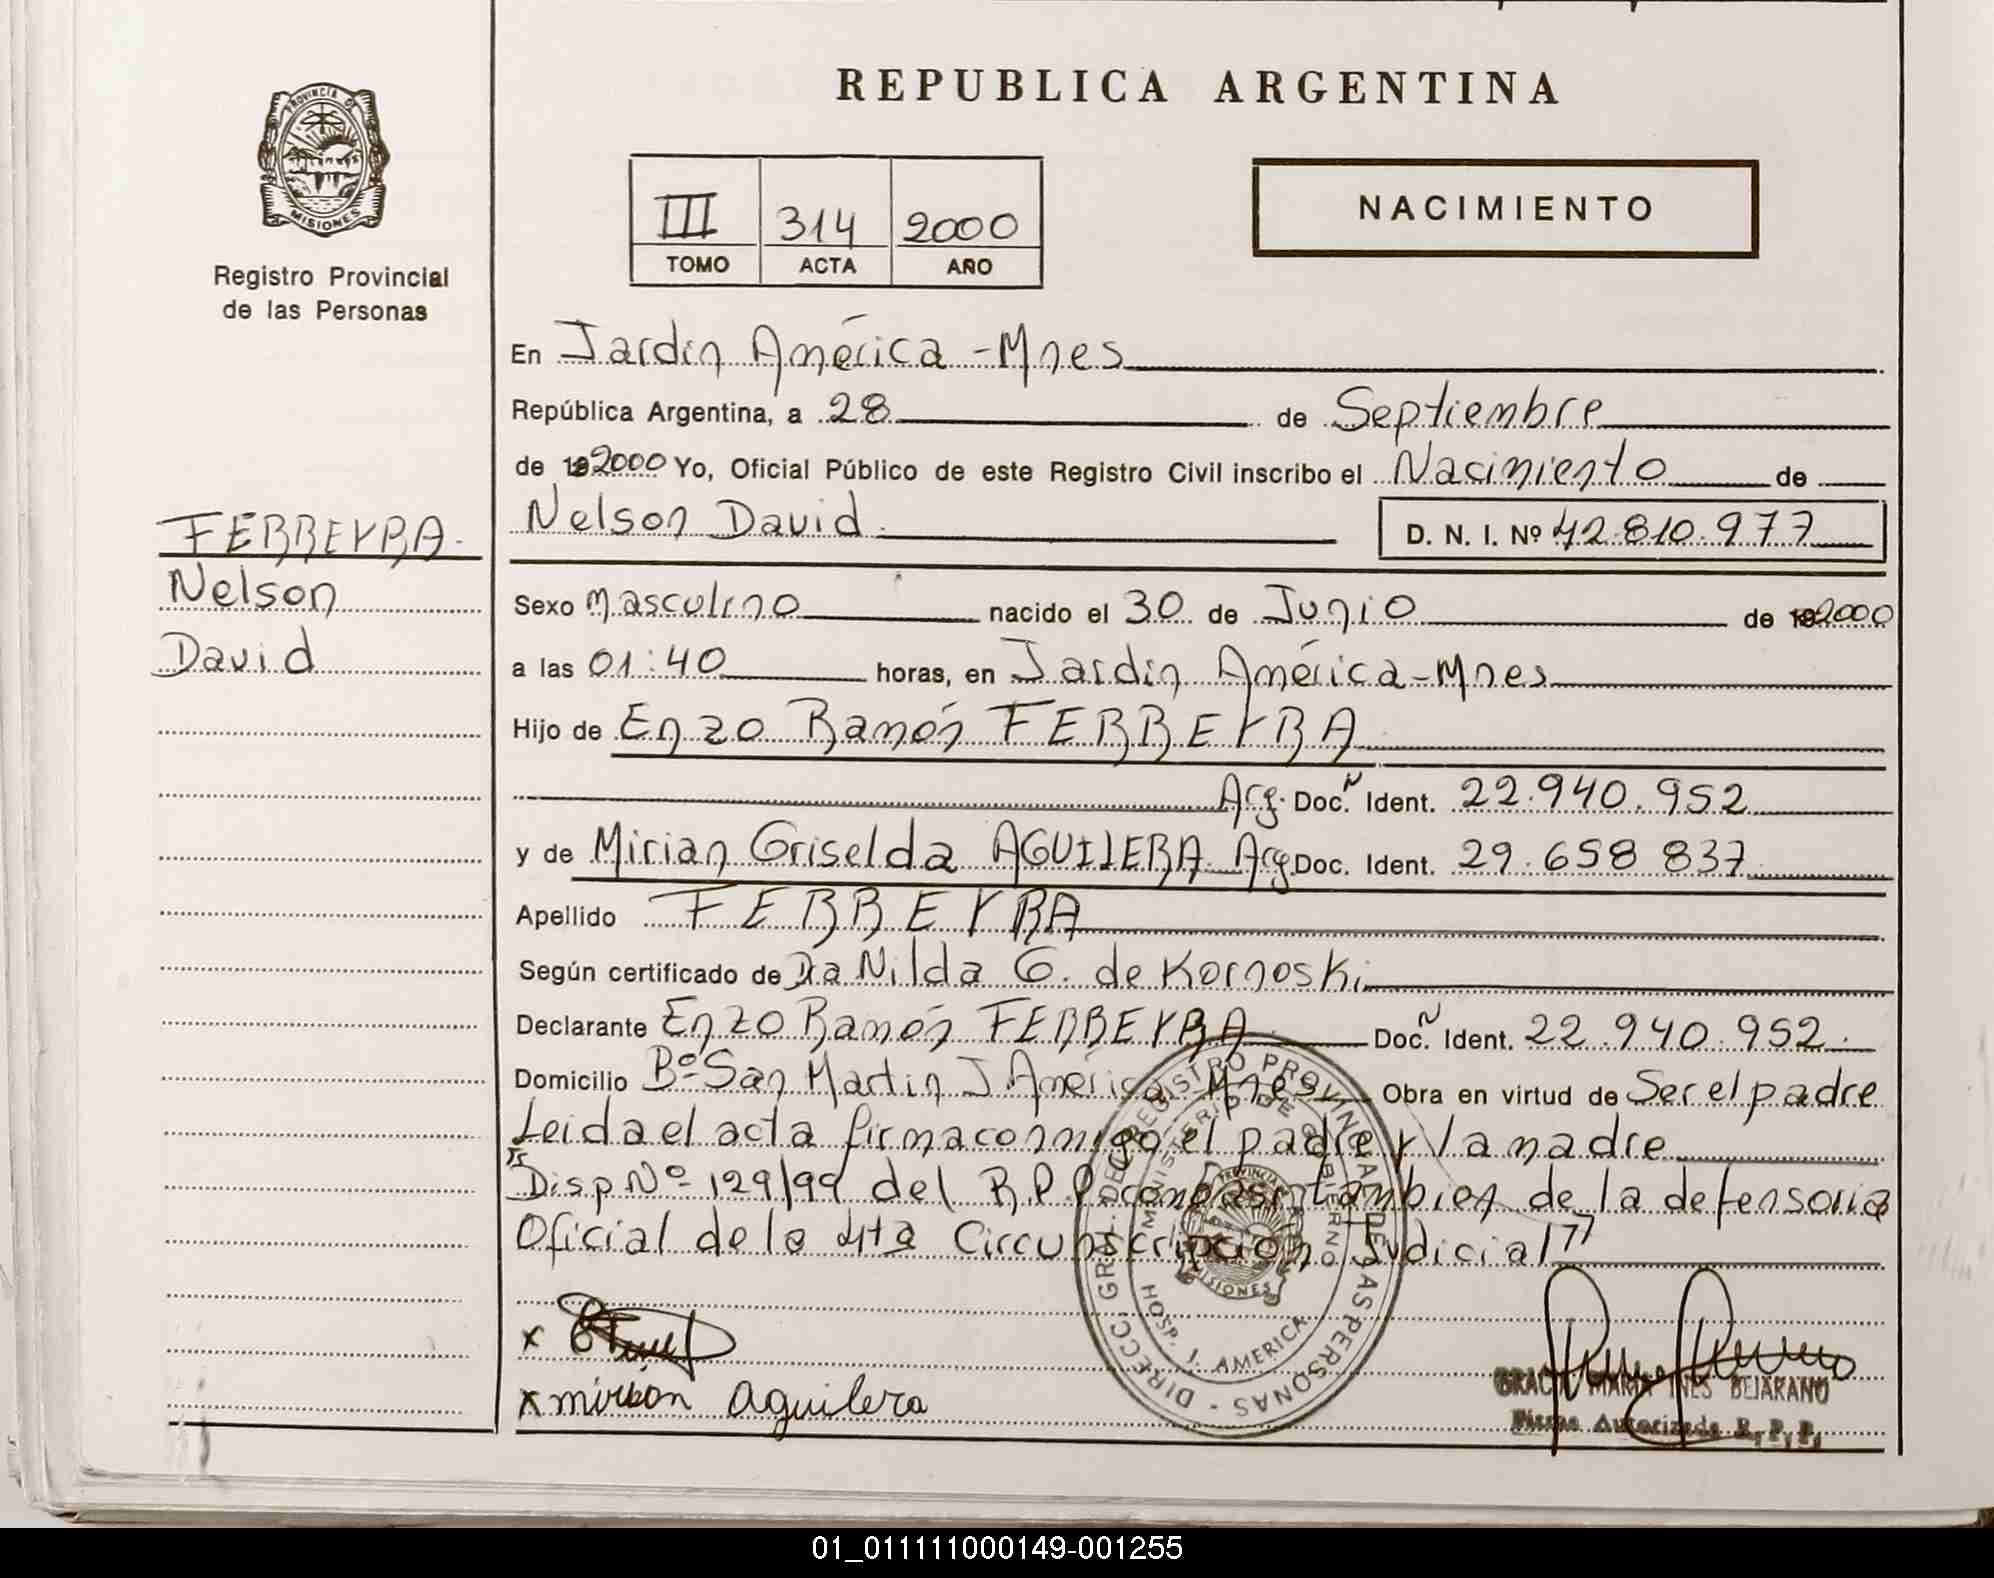 REPUBLICA ARGENTINA
PROVINCIA DE
MISIONES
Registro Provincial
de las Personas
III 314 2000
TOMO ACTA AÑO
NACIMIENTO
En Jardín América - Mnes
República Argentina, a 28 de Septiembre
de 2000 Yo, Oficial Público de este Registro Civil inscribo el Nacimiento de
Nelson David D. N. I. Nº 42.810.977
FERREYRA
Nelson
David
Sexo masculino nacido el 30 de Junio de 2000
a las 01:40 horas, en Jardín América - Mnes
Hijo de Enzo Ramón FERREYRA
Arg. Doc. N Ident. 22.940.952
y de Mirian Griselda AGUILERA Arg Doc. Ident. 29.658 837
Apellido FERREYRA
Según certificado de Dra Nilda G. de Kornoski
Declarante Enzo Ramón FERREYRA Doc. N Ident. 22.940.952
Domicilio Bº San Martin J. América Mnes Obra en virtud de Ser el padre
Leida el acta firma conmigo el padre y la madre
Disp Nº 129/99 del R.P.P. tambien de la defensoria
Oficial de la 4ta Circunscripción Judicial
x
x mirian aguilera
DIRECC. GRAL. DEL REGISTRO PROVINCIAL DE LAS PERSONAS
MINISTERIO DE GOBIERNO
PROVINCIA
MISIONES
HOSP. J. AMERICA
MARIA INES BEJARANO
Autorizada R. P. P.
01_011111000149-001255